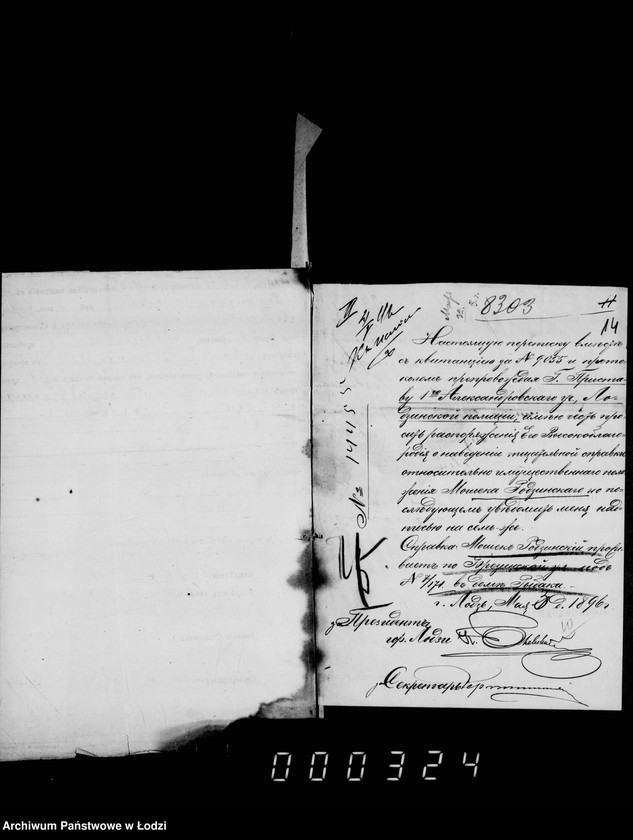 8303
14
Настоящую переписку вмѣстѣ
съ квитанціею за № 9055 и прото-
коломъ препровождая Г. Приста-
ву 1го Александровскаго уч. Лод-
зинской полиціи, имѣю честь про-
сить распоряженія Его Высокоблаго-
родія о наведеніи тщательной справки
относительно имущественнаго поло-
женія Мошека Гадзинскаго и о по-
слѣдующемъ увѣдомить меня над-
писью на семъ же.
Справка: Мошекъ Гадзинскій прожи-
ваетъ по ул. подъ
№ 7/171 въ домѣ Рыбака.
г. Лодзь, Мая 1896 г.
Президентъ
гор. Лодзи
Секретарь
№ 14145
000324
Archiwum Państwowe w Łodzi